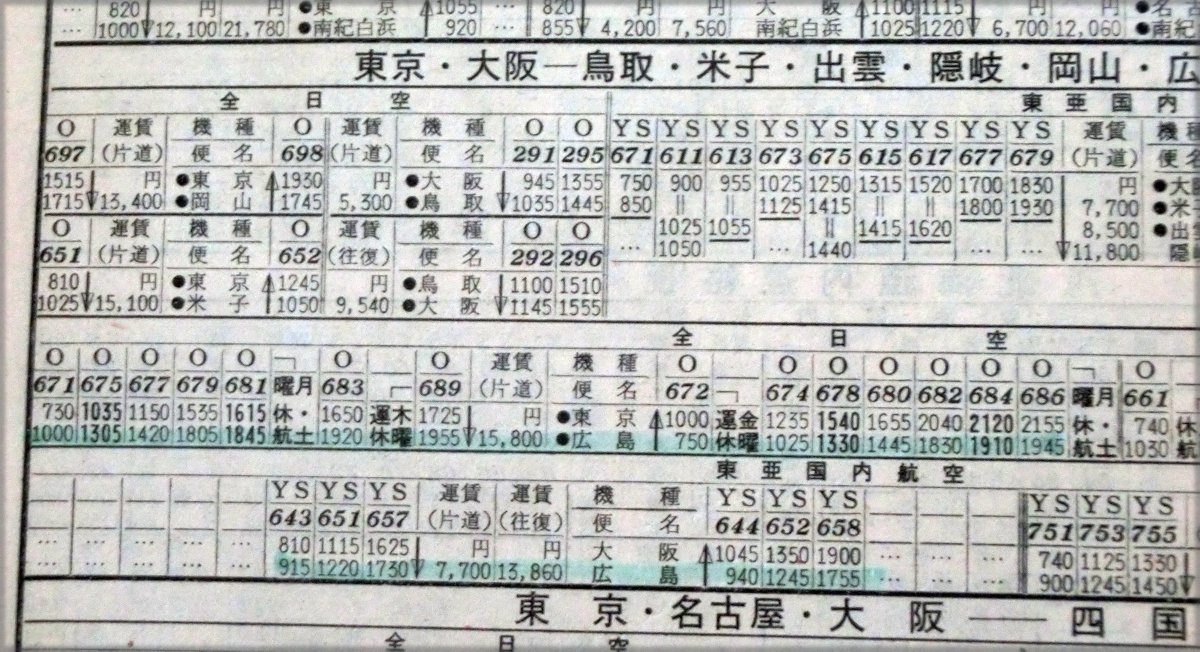 … 820 円 円 ●東 京 1055 … 820 円 円 大 阪 1100 1115 円 円
… 1000 12,100 21,780 ●南紀白浜 920 … 855 4,200 7,560 南紀白浜 1025 1220 6,700 12,060 ●南紀
東京・大阪―鳥取・米子・出雲・隠岐・岡山・広
全 日 空 東 亜 国 内
O 運賃 機 種 O 運賃 機 種 O O YS YS YS YS YS YS YS YS YS 運賃 機
697 (片道) 便 名 698 (片道) 便 名 291 295 671 611 613 673 675 615 617 677 679 (片道) 便
1515 円 ●東 京 1930 円 ●大 阪 945 1355 750 900 955 1025 1250 1315 1520 1700 1830 円 ●大
1715 13,400 ●岡 山 1745 5,300 ●鳥 取 1035 1445 850 || || 1125 1415 || || 1800 1930 7,700 ●米
O 運賃 機 種 O 運賃 機 種 O O 1025 1055 || 1415 1620 8,500 ●出雲
651 (片道) 便 名 652 (往復) 便 名 292 296 … 1050 … 1440 … … 11,800 隠
810 円 ●東 京 1245 円 ●鳥 取 1100 1510
1025 15,100 ●米 子 1050 9,540 ●大 阪 1145 1555
全 日 空
O O O O O O O 運賃 機 種 O O O O O O O O
671 675 677 679 681 曜月 683 689 (片道) 便 名 672 674 678 680 682 684 686 曜月 661
730 1035 1150 1535 1615 休・ 1650 運木 1725 円 ●東 京 1000 運金 1235 1540 1655 2040 2120 2155 休・ 740 休
1000 1305 1420 1805 1845 航土 1920 休曜 1955 15,800 ●広 島 750 休曜 1025 1330 1445 1830 1910 1945 航土 1030 航
東 亜 国 内 航 空
YS YS YS 運賃 運賃 機 種 YS YS YS YS YS YS
643 651 657 (片道) (往復) 便 名 644 652 658 751 753 755
… … … … … 810 1115 1625 円 円 大 阪 1045 1350 1900 … … … 740 1125 1330
… … … … … 915 1220 1730 7,700 13,860 広 島 940 1245 1755 … … … 900 1245 1450
東 京・名古屋・大 阪 ― 四 国
全 日 空